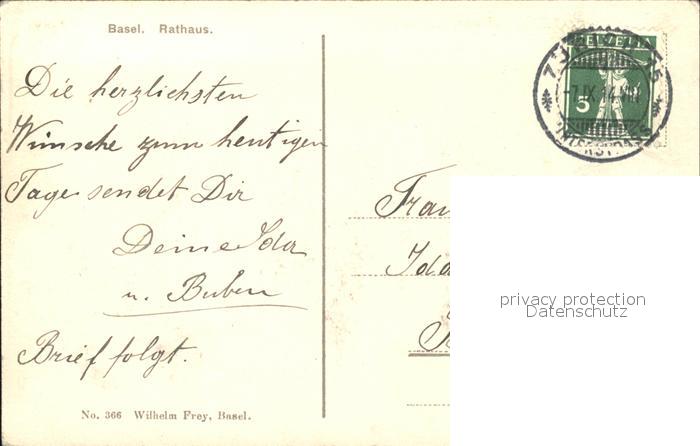 Basel. Rathaus.
Die herzlichsten
Wünsche zum heutigen
Tage sendet Dir
Deine Ida
u. Buben
Brief folgt.
No. 366 Wilhelm Frey, Basel.
HELVETIA
5
ZÜRICH 15
-7.IX.14.VIII
Frau
Ida
privacy protection
Datenschutz